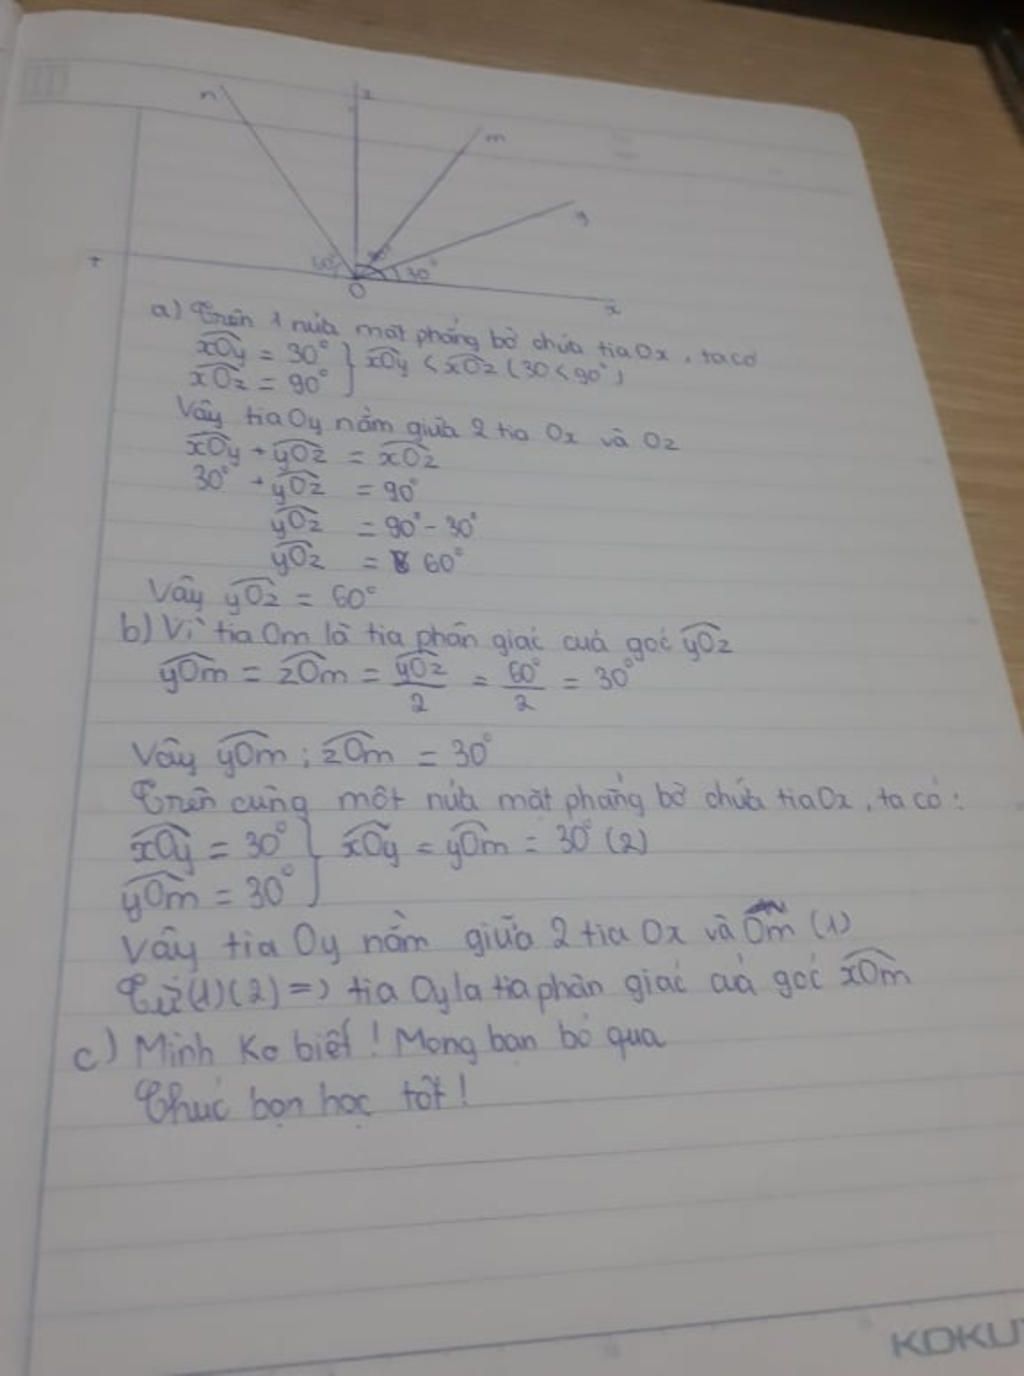 n
z
m
y
t
60°
90°
30°
O
x
a) Trên 1 nửa mặt phẳng bờ chứa tia Ox, ta có
xOy = 30° } xOy < xOz (30 < 90°)
xOz = 90°
Vậy tia Oy nằm giữa 2 tia Ox và Oz
xOy + yOz = xOz
30° + yOz = 90°
yOz = 90° - 30°
yOz = 60°
Vậy yOz = 60°
b) Vì tia Om là tia phân giác cuả goć yOz
yOm = zOm = yOz/2 = 60°/2 = 30°
Vậy yOm ; zOm = 30°
Trên cùng một nửa mặt phẳng bờ chứa tia Ox, ta có :
xOy = 30° } xOy = yOm = 30° (2)
yOm = 30°
Vậy tia Oy nằm giữa 2 tia Ox và Om (1)
Từ (1) (2) => tia Oy la tia phân giác cuả goć xOm
c) Mình Ko biết ! Mong bạn bỏ qua
Chúc bạn học tốt !
KOKU